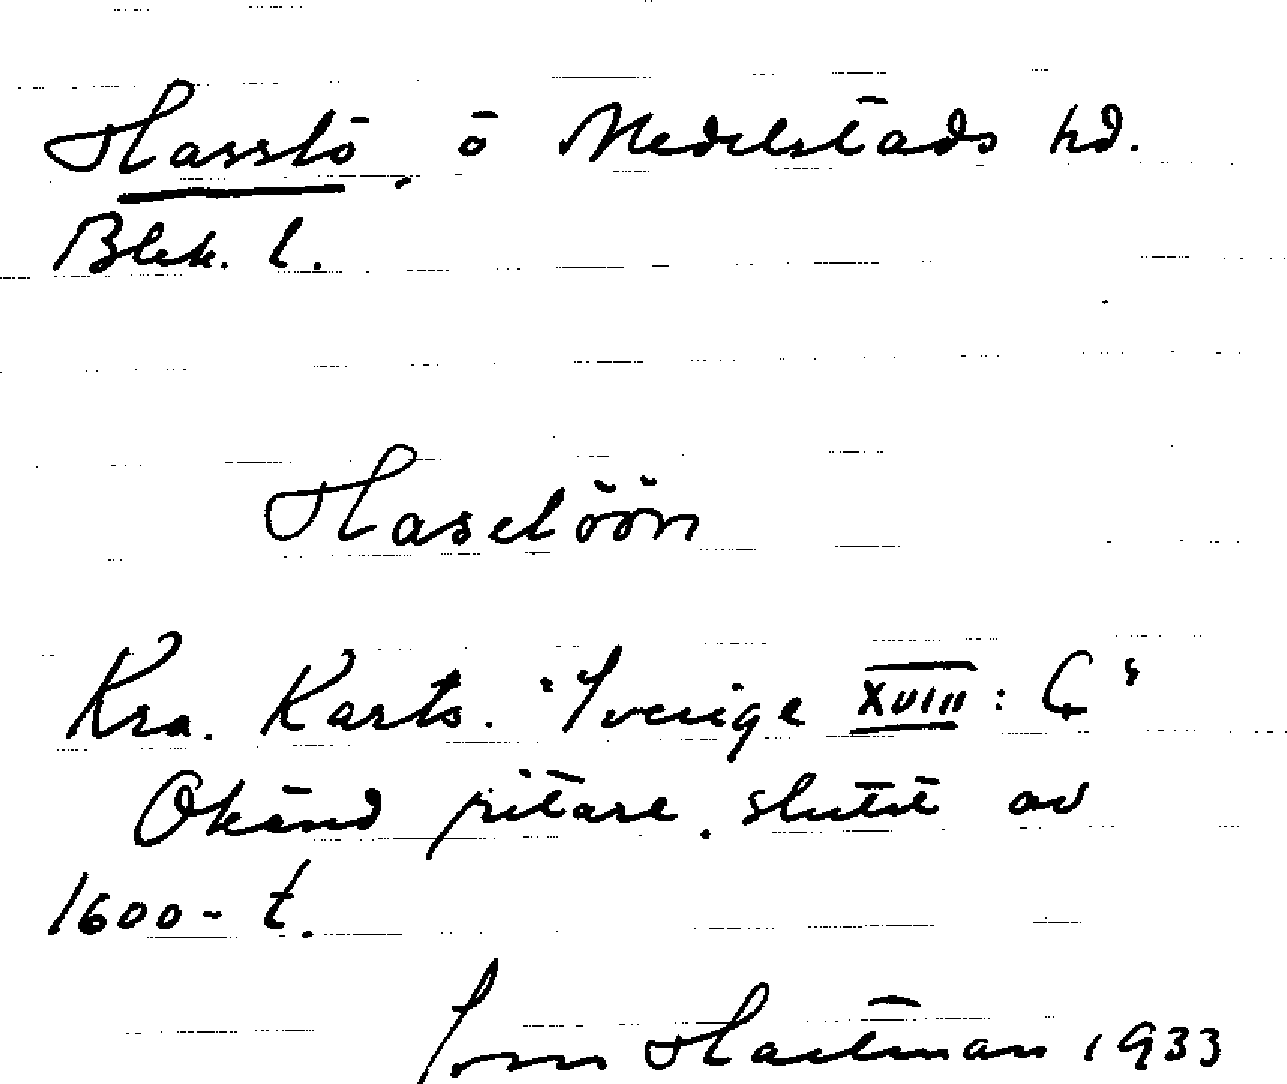 Hasslö, ö Medelstads hd.
Blek. l.
Haselöön
Kra. Karts. "Sverige XVIII: G"
Okänd ritare, slutet av
1600-t.
Hartman 1933